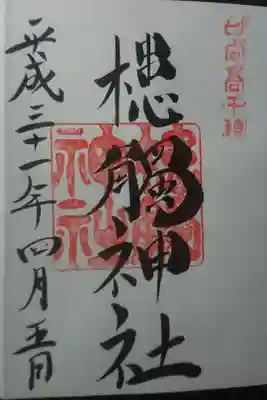 日向高千穂
槵觸神社
平成三十一年四月五日